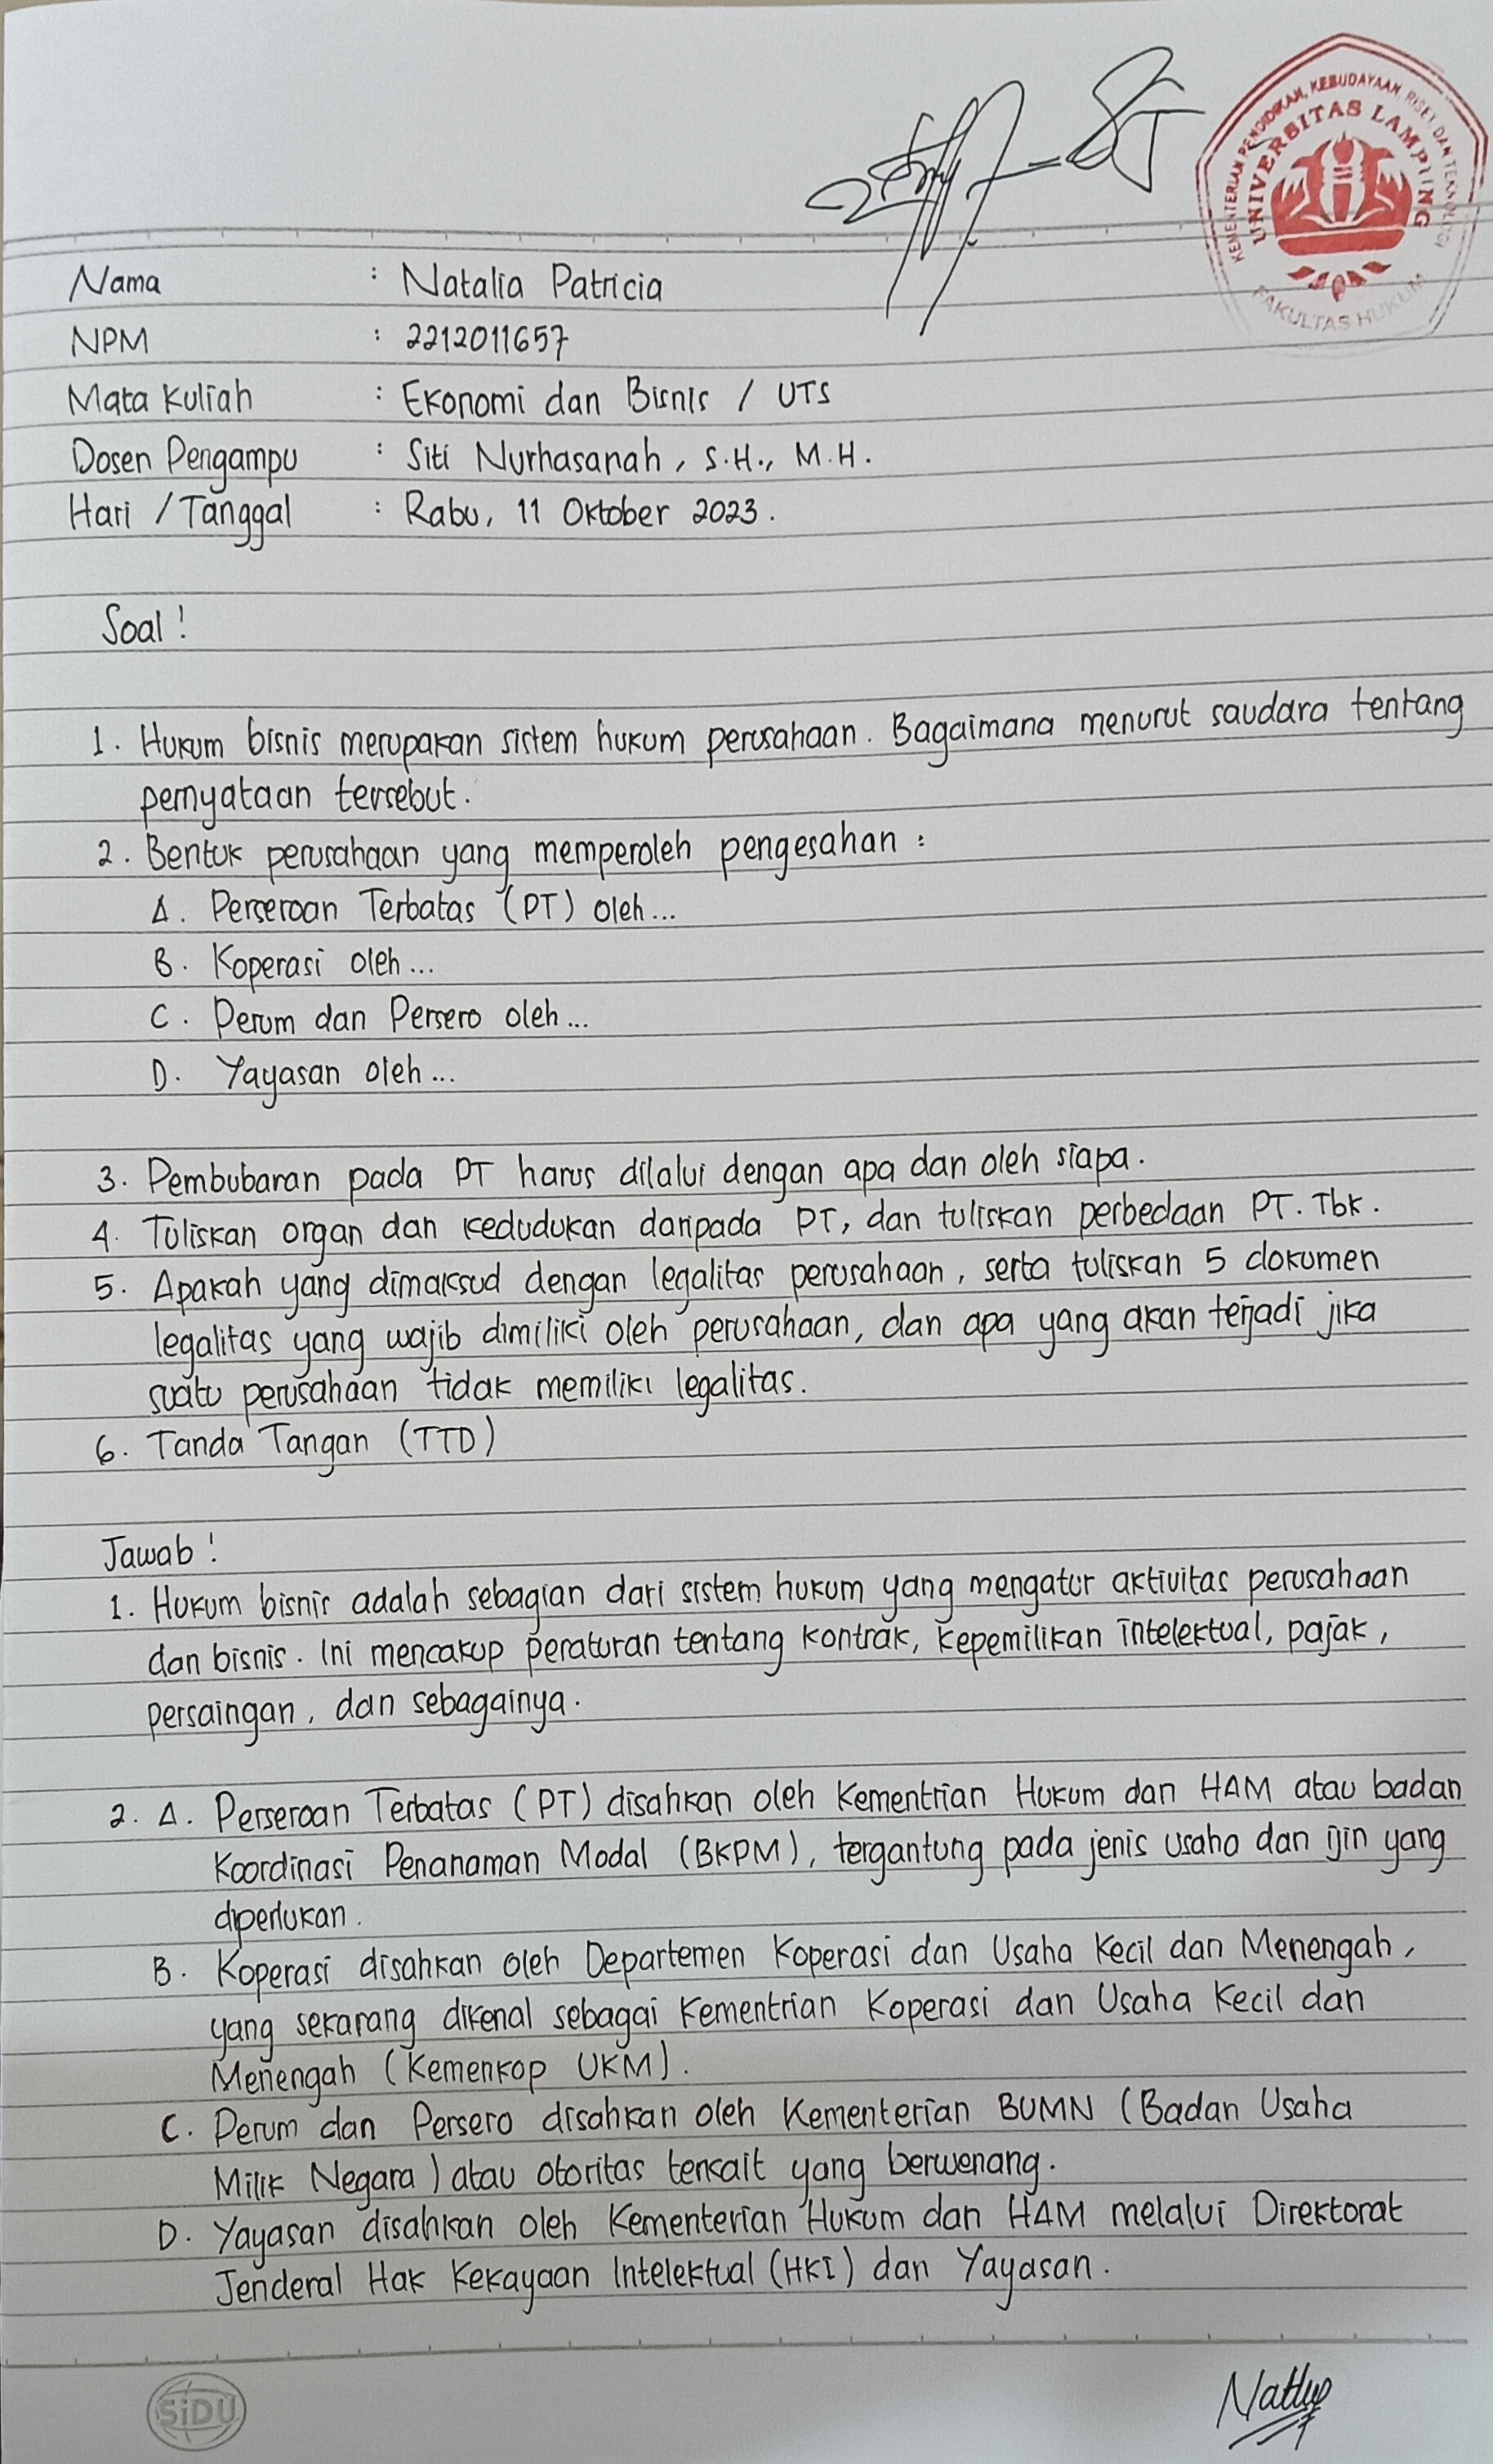 KEMENTERIAN PENDIDIKAN, KEBUDAYAAN, RISET, DAN TEKNOLOGI
UNIVERSITAS LAMPUNG
FAKULTAS HUKUM
Nama : Natalia Patricia
NPM : 2212011657
Mata Kuliah : Ekonomi dan Bisnis / UTS
Dosen Pengampu : Siti Nurhasanah, S.H., M.H.
Hari / Tanggal : Rabu, 11 Oktober 2023.
Soal !
1. Hukum bisnis merupakan sistem hukum perusahaan. Bagaimana menurut saudara tentang
pernyataan tersebut.
2. Bentuk perusahaan yang memperoleh pengesahan :
A. Perseroan Terbatas (PT) oleh...
B. Koperasi oleh...
C. Perum dan Persero oleh...
D. Yayasan oleh...
3. Pembubaran pada PT harus dilalui dengan apa dan oleh siapa.
4. Tuliskan organ dan kedudukan daripada PT, dan tuliskan perbedaan PT. Tbk.
5. Apakah yang dimaksud dengan legalitas perusahaan, serta tuliskan 5 dokumen
legalitas yang wajib dimiliki oleh perusahaan, dan apa yang akan terjadi jika
suatu perusahaan tidak memiliki legalitas.
6. Tanda Tangan (TTD)
Jawab !
1. Hukum bisnis adalah sebagian dari sistem hukum yang mengatur aktivitas perusahaan
dan bisnis. Ini mencakup peraturan tentang kontrak, kepemilikan intelektual, pajak,
persaingan, dan sebagainya.
2. A. Perseroan Terbatas (PT) disahkan oleh Kementrian Hukum dan HAM atau badan
Koordinasi Penanaman Modal (BKPM), tergantung pada jenis usaha dan ijin yang
diperlukan.
B. Koperasi disahkan oleh Departemen Koperasi dan Usaha Kecil dan Menengah,
yang sekarang dikenal sebagai Kementrian Koperasi dan Usaha Kecil dan
Menengah (Kemenkop UKM).
C. Perum dan Persero disahkan oleh Kementerian BUMN (Badan Usaha
Milik Negara) atau otoritas terkait yang berwenang.
D. Yayasan disahkan oleh Kementerian Hukum dan HAM melalui Direktorat
Jenderal Hak Kekayaan Intelektual (HKI) dan Yayasan.
SiDU